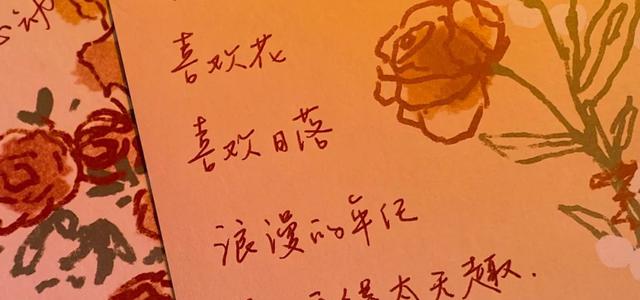 喜欢花
喜欢日落
浪漫的年纪
太无趣.